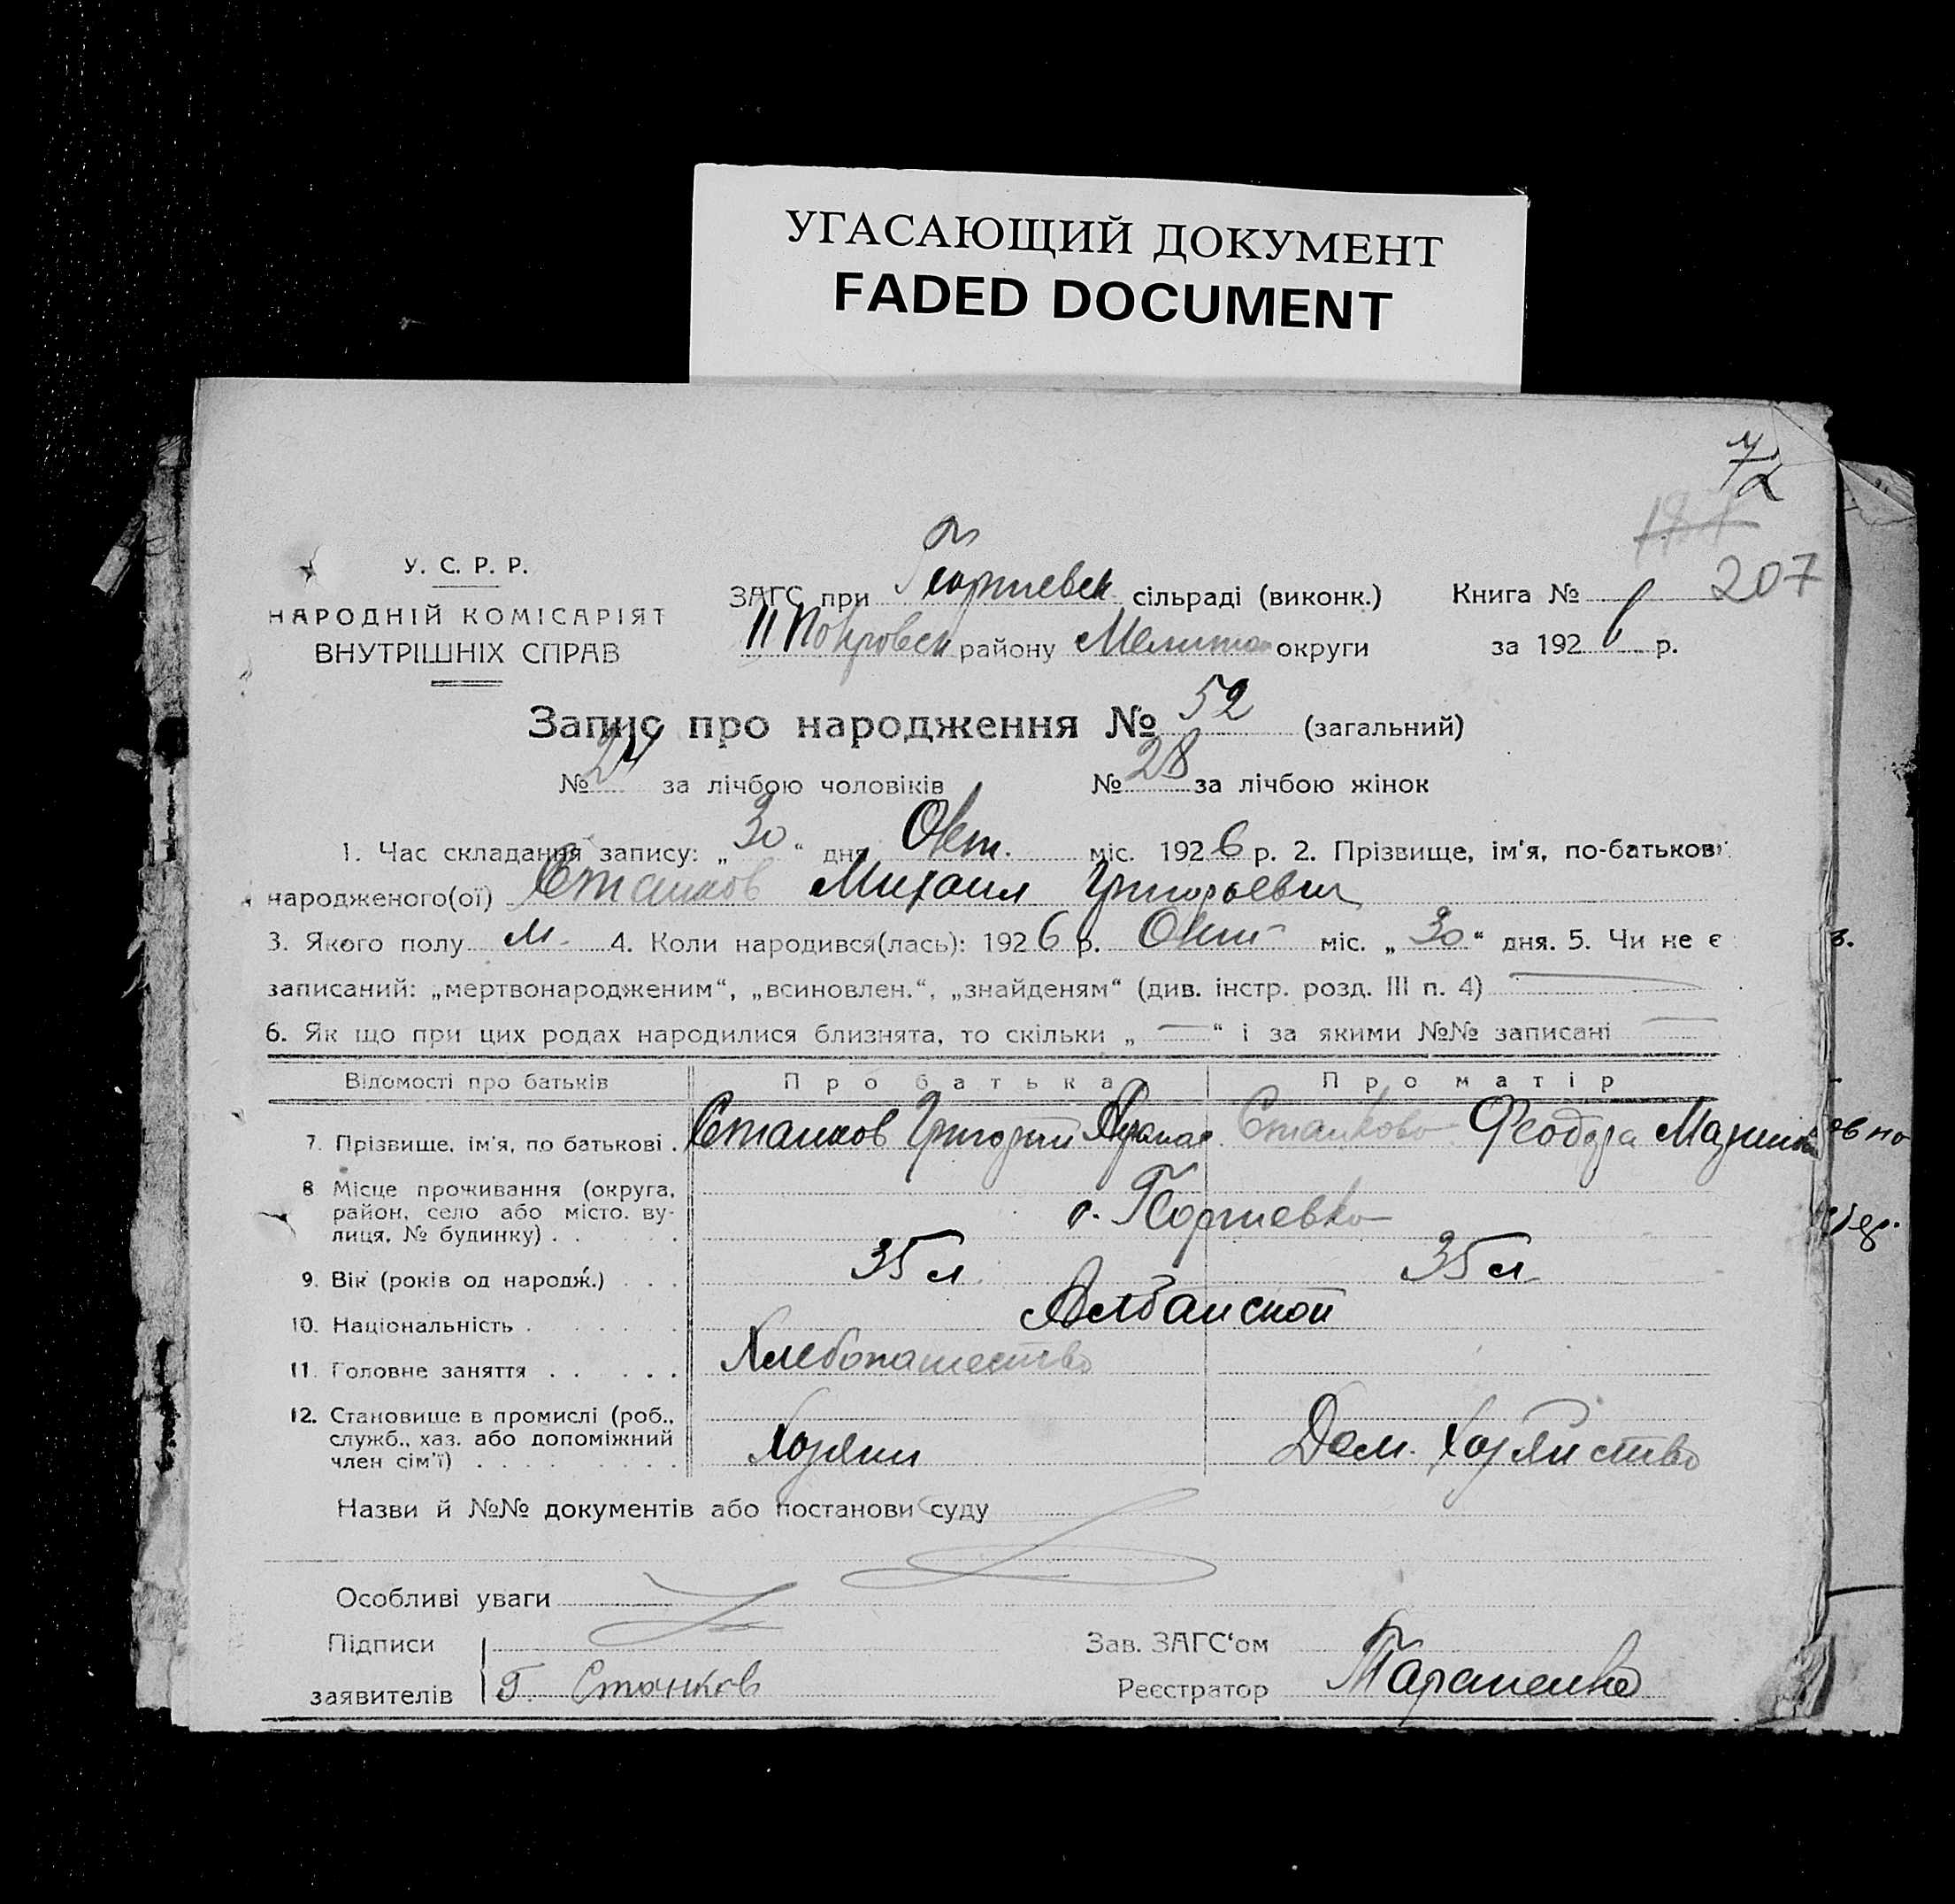 УГАСАЮЩИЙ ДОКУМЕНТ
FADED DOCUMENT
207
У. С. Р. Р.
НАРОДНІЙ КОМІСАРІЯТ
ВНУТРІШНІХ СПРАВ
ЗАГС при Георгиевск сільраді (виконк.)
II Покровск району Мелитоп округи
Книга №
за 1926 р.
Запис про народження № 52 (загальний)
№ 24 за лічбою чоловіків № 28 за лічбою жінок
1. Час складання запису: „30“ дня Окт. міс. 1926 р. 2. Прізвище, ім'я, по-батькові
народженого(ої) Станков Михаил Григорьевич
3. Якого полу м. 4. Коли народився(лась): 1926 р. Окт міс. „30“ дня. 5. Чи не є
записаний: „мертвонародженим“, „всиновлен.“, „знайденям“ (див. інстр. розд. III п. 4)
6. Як що при цих родах народилися близнята, то скільки „—“ і за якими №№ записані —
Відомості про батьків Про батька Про матір
7. Прізвище, ім'я, по батькові . Станков Григорий Станкова Феодора
8 Місце проживання (округа,
район, село або місто. ву-
лиця, № будинку) . . с. Георгиевка
9. Вік (років од народж.) . . . 35 л. 35 л.
10. Національність . Албанской
11. Головне заняття . . . . . Хлебопашество
12. Становище в промислі (роб.,
служб., хаз. або допоміжний
член сім'ї) . . . . . . . . . Хозяин Дом. Хозяйство
Назви й №№ документів або постанови суду
Особливі уваги
Підписи
заявителів Г. Станков
Зав. ЗАГС'ом
Реєстратор Тараненко